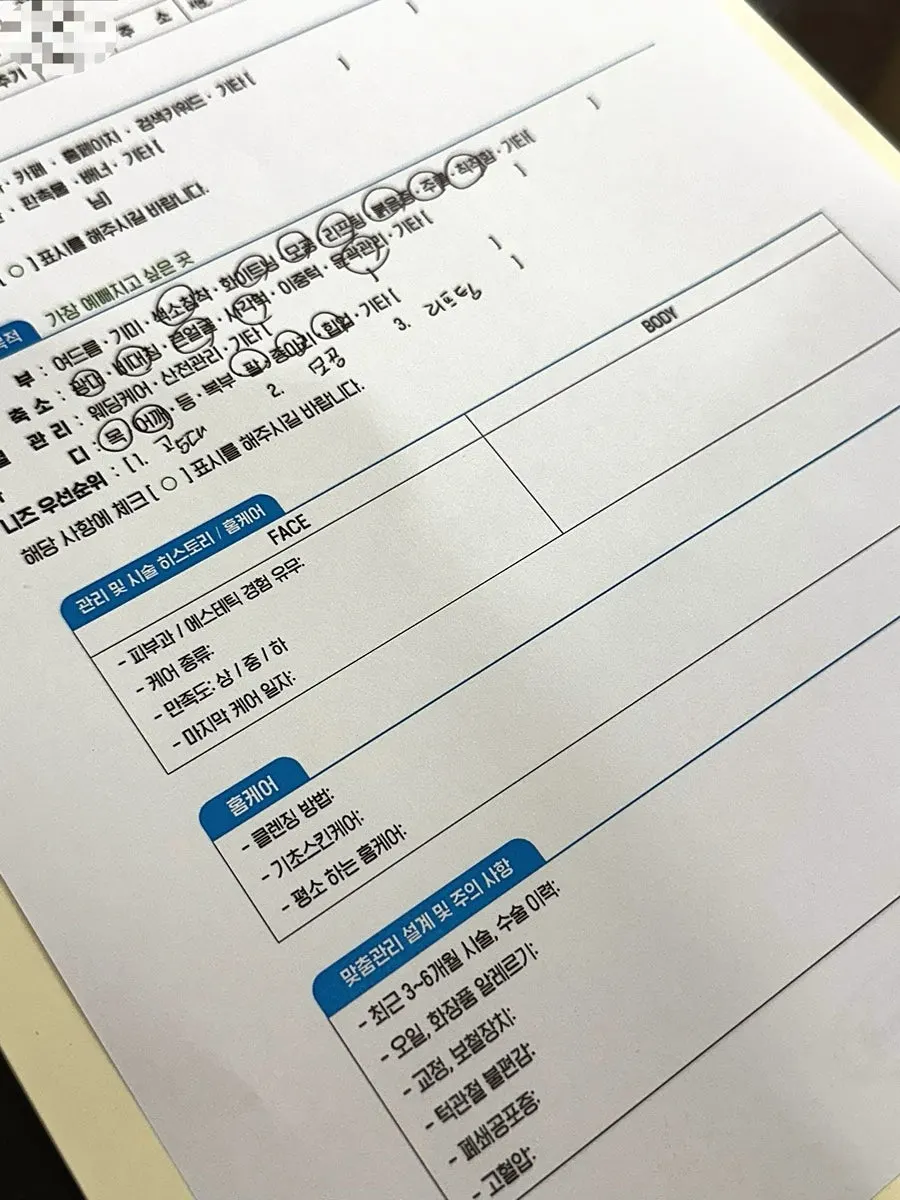 주 소
주기
· 카페 · 홈페이지 · 검색키워드 · 기타 [ ]
· 판촉물 · 배너 · 기타 [ ]
님]
[ ○ ] 표시를 해주시길 바랍니다.
목적 가장 예뻐지고 싶은 곳
부 : 여드름 · 기미 · 색소침착 · 화이트닝 · 모공 · 리프팅 · 붉은증 · 주름 · 칙칙함 · 기타[ ]
축 소 : 광대 · 비대칭 · 큰얼굴 · 사각턱 · 이중턱 · 윤곽관리 · 기타 [ ]
관 리 : 웨딩케어 · 산전관리 · 기타 [ ]
디 : 목 · 어깨 · 등 · 복부 · 팔 · 종아리 · 힙업 · 기타 [ ]
니즈 우선순위 : [ 1. 2. 모공 3. 리프팅 ]
해당 사항에 체크 [ ○ ] 표시를 해주시길 바랍니다.
관리 및 시술 히스토리 / 홈케어
FACE BODY
- 피부과 / 에스테틱 경험 유무:
- 케어 종류:
- 만족도: 상 / 중 / 하
- 마지막 케어 일자:
홈케어
- 클렌징 방법:
- 기초스킨케어:
- 평소 하는 홈케어:
맞춤관리 설계 및 주의 사항
- 최근 3~6개월 시술, 수술 이력:
- 오일, 화장품 알레르기:
- 교정, 보철장치:
- 턱관절 불편감:
- 폐쇄공포증:
- 고혈압: